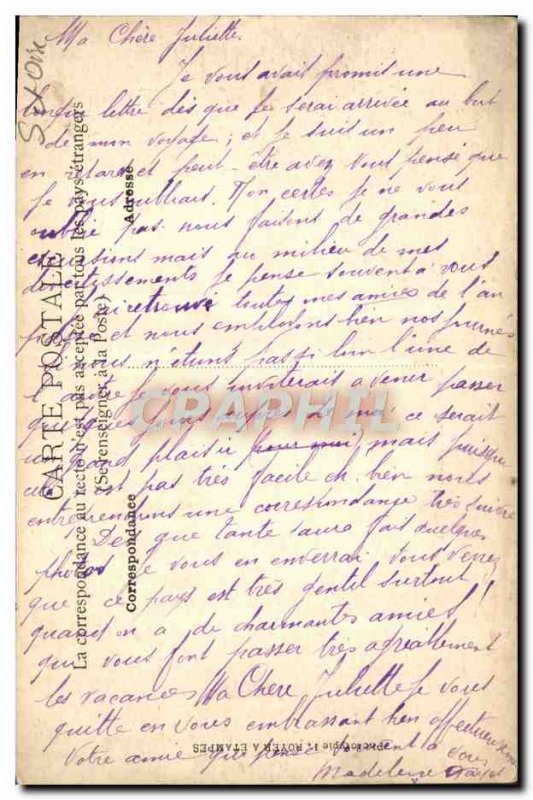 Ma Chère Juliette
Je vous avait promit une
longue lettre dès que je serai arrivée au but
de mon voyage ; et je suis un peu
en retard et peut-être avez vous pensé que
je vous oubliait. Non certes je ne vous
oublie pas nous faisons de grandes
excursions mais au milieu de mes
divertissements je pense souvent à vous
retrouvé toutes mes amies de l'an
et nous employons bien nos journées
n'étions pas si loin l'une de
l'autre je vous inviterais a venir passer
quelques jours auprès de moi ce serait
un grand plaisir pour moi, mais puisque
cela est pas très facile eh bien nous
entreprendrons une correspondance très suivie
Dès que tante aura fait quelques
photos je vous en enverrai vous verrez
que ce pays est très gentil surtout
quand on a de charmantes amies !
qui vous font passer très agréablement
les vacances Ma Chere Juliette je vous
quitte en vous embrassant bien affectueusement
Votre amie qui pense souvent a vous
Madeleine
CARTE POSTALE
La correspondance au recto n'est pas acceptée par tous les pays étrangers
(Se renseigner à la Poste)
Correspondance
Adresse
ROYER A ETAMPES
CPAPHIL